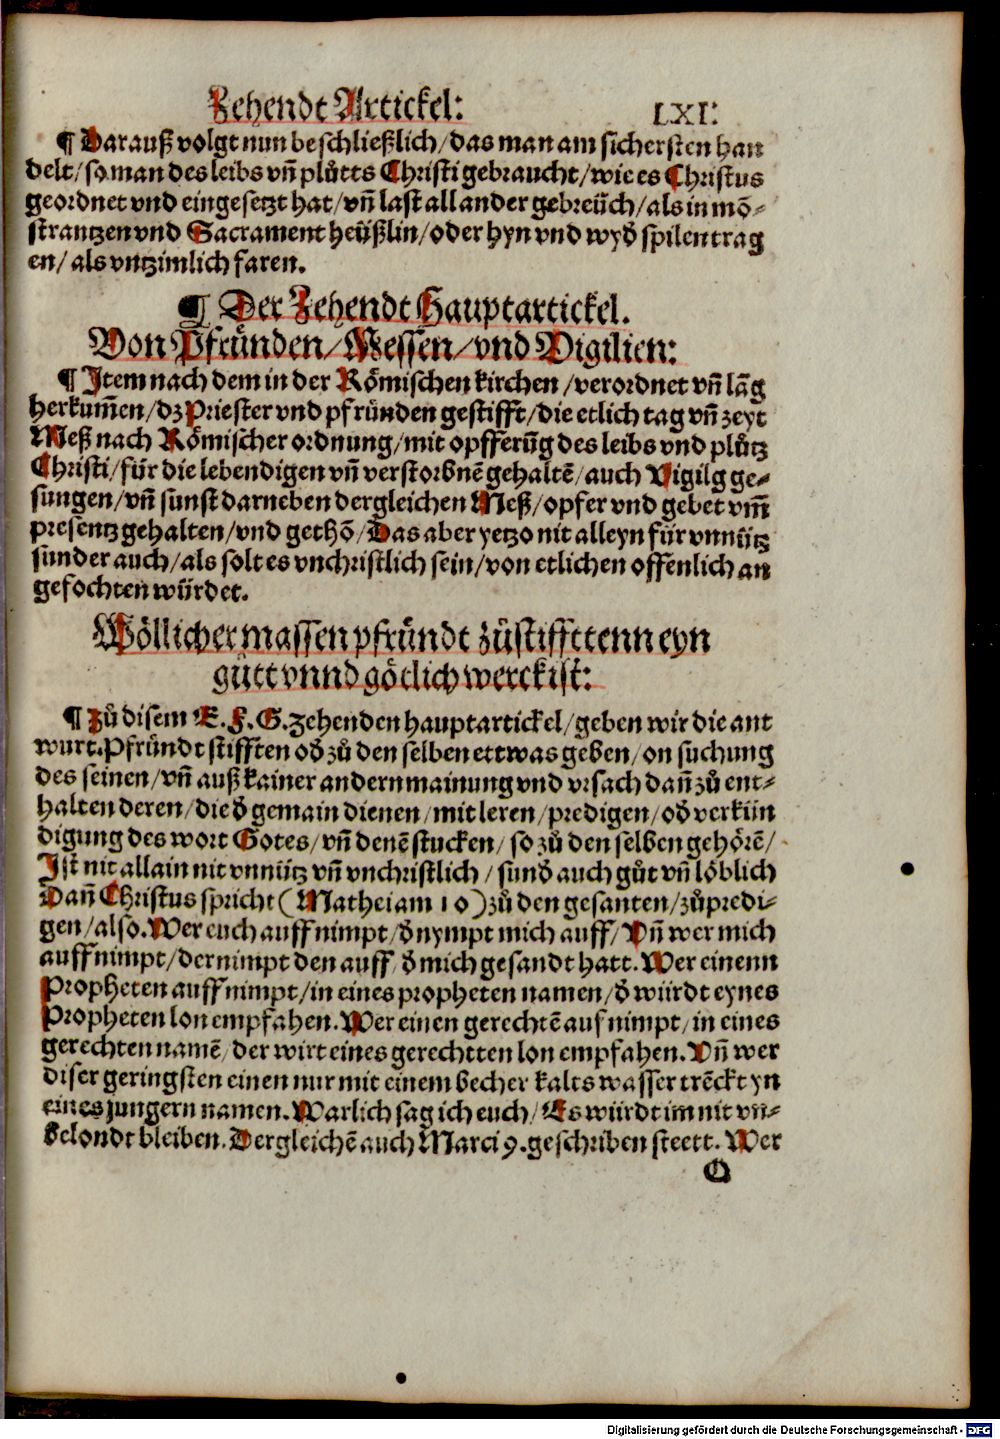 Zehendt Artickel: LXI:
¶ Darauß volgt nun beschließlich/das man am sichersten han
delt/so man des leibs vñ plůtts Christi gebraucht/wie es Christus
geordnet vnd eingesetzt hat/vñ last all ander gebreüch/als in mō-
strantzen vnd Sacrament heüßlin/oder hyn vnd wyð spilen trag
en/als vntzimlich faren.
¶ Der Zehendt Hauptartickel.
Von Pfründen/Messen/vnd Vigilien:
¶ Item nach dem in der Römischen kirchen/verordnet vñ lāg
herkum̄en/dz Priester vnd pfründen gestifft/die etlich tag vñ zeyt
Meß nach Römischer ordnung/mit opfferūg des leibs vnd plůtz
Christi/für die lebendigen vñ verstorbnē gehaltē/auch Vigilg ge-
sungen/vñ sunst darneben dergleichen Meß/opfer vnd gebet vm̄
presentz gehalten/vnd gethō/Das aber yetzo nit alleyn für vnnütz
sunder auch/als solt es vnchristlich sein/von etlichen offenlich an
gefochten würdet.
Wöllicher massen pfründt zůstiffttenn eyn
gůtt vnnd götlich werck ist:
¶ Zů disem E.F.G. zehenden hauptartickel/geben wir die ant
wurt. Pfründt stifften oð zů den selben ettwas geben/on suchung
des seinen/vñ auß kainer andern mainung vnd vrsach dañ zů ent-
halten deren/die ð gemain dienen/mit leren/predigen/oð verkün
digung des wort Gotes/vñ denē stucken/so zů den selben gehörē/
Ist nit allain nit vnnütz vñ vnchristlich/sunð auch gůt vñ löblich
Dañ Christus spricht (Mathei am 10) zů den gesanten/zůpredi-
gen/also. Wer euch auff nimpt/ð nympt mich auff/Vñ wer mich
auff nimpt/der nimpt den auff ð mich gesandt hatt. Wer einenn
Propheten auff nimpt/in eines propheten namen/ð würdt eynes
Propheten lon empfahen. Wer einen gerechtē auf nimpt/in eines
gerechten namē/der wirt eines gerechtten lon empfahen. Vñ wer
diser geringsten einen nur mit einem becher kalts wasser trēckt yn
eines jungern namen. Warlich sag ich euch/Es würdt im nit vn-
belondt bleiben. Dergleichē auch Marci 9. geschriben steett. Wer
Q
Digitalisierung gefördert durch die Deutsche Forschungsgemeinschaft - DFG